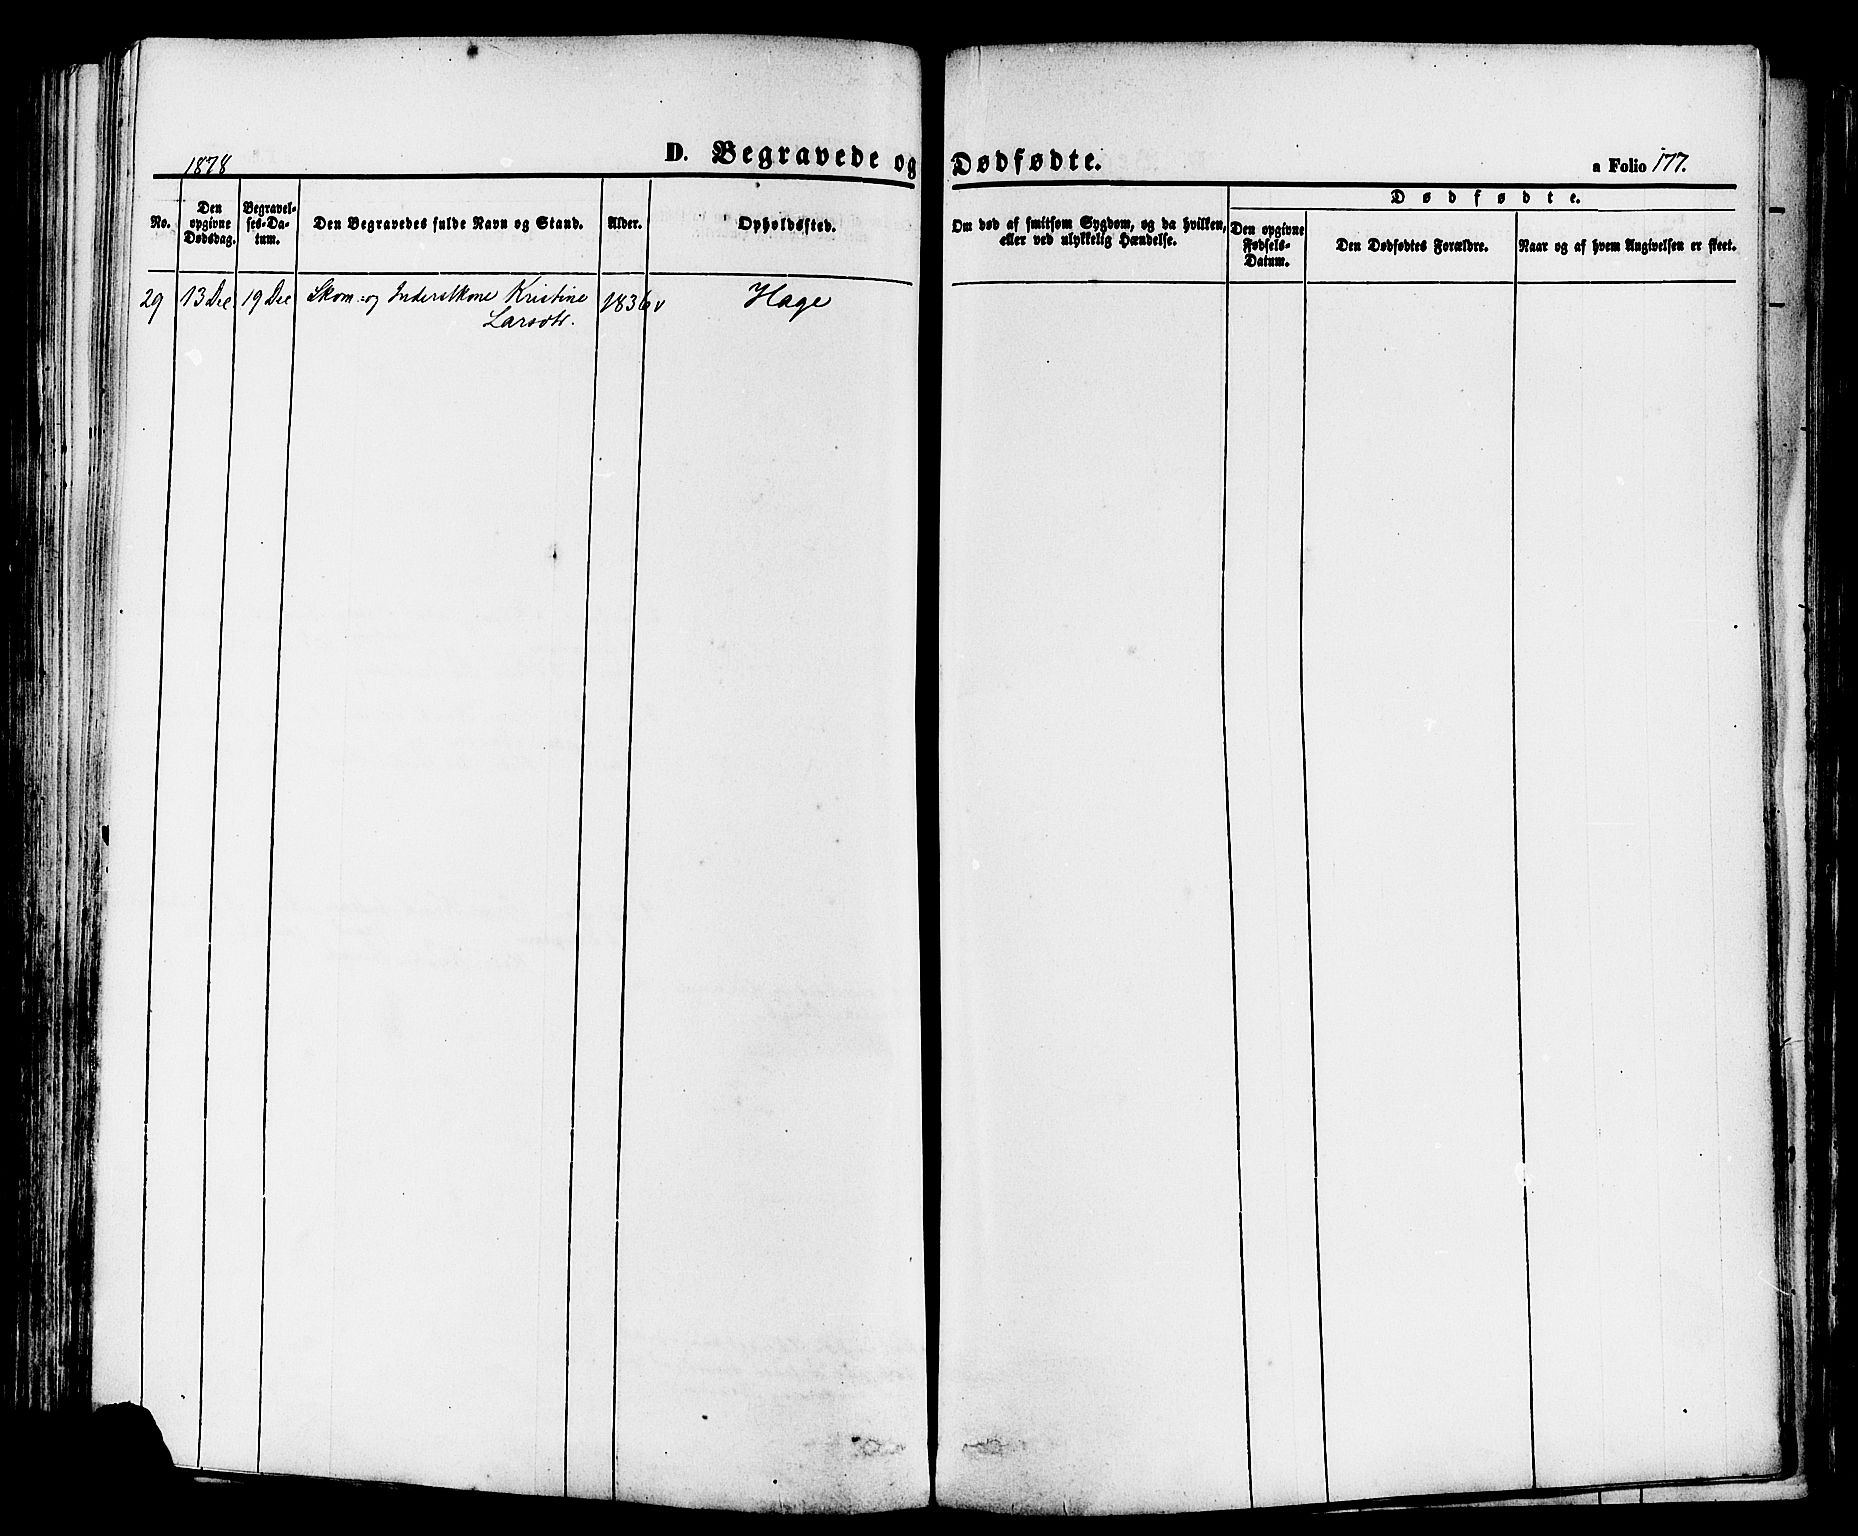 1878
D. Begravede og Dødfødte.
a Folio 177.
No.
Den opgivne Dødsdag.
Begravelses-Datum.
Den Begravedes fulde Navn og Stand.
Alder.
Opholdssted.
Om død af smitsom Sygdom, og da hvilken,
eller ved ulykkelig Hændelse.
Dødfødte.
Den opgivne Fødsels-Datum.
Den Dødfødtes Forældre.
Naar og af hvem Angivelsen er skeet.
29 13 Dec 19 Dec Skom.- og Inderstkone Kristine 1836 v Hage
Larsdtr.